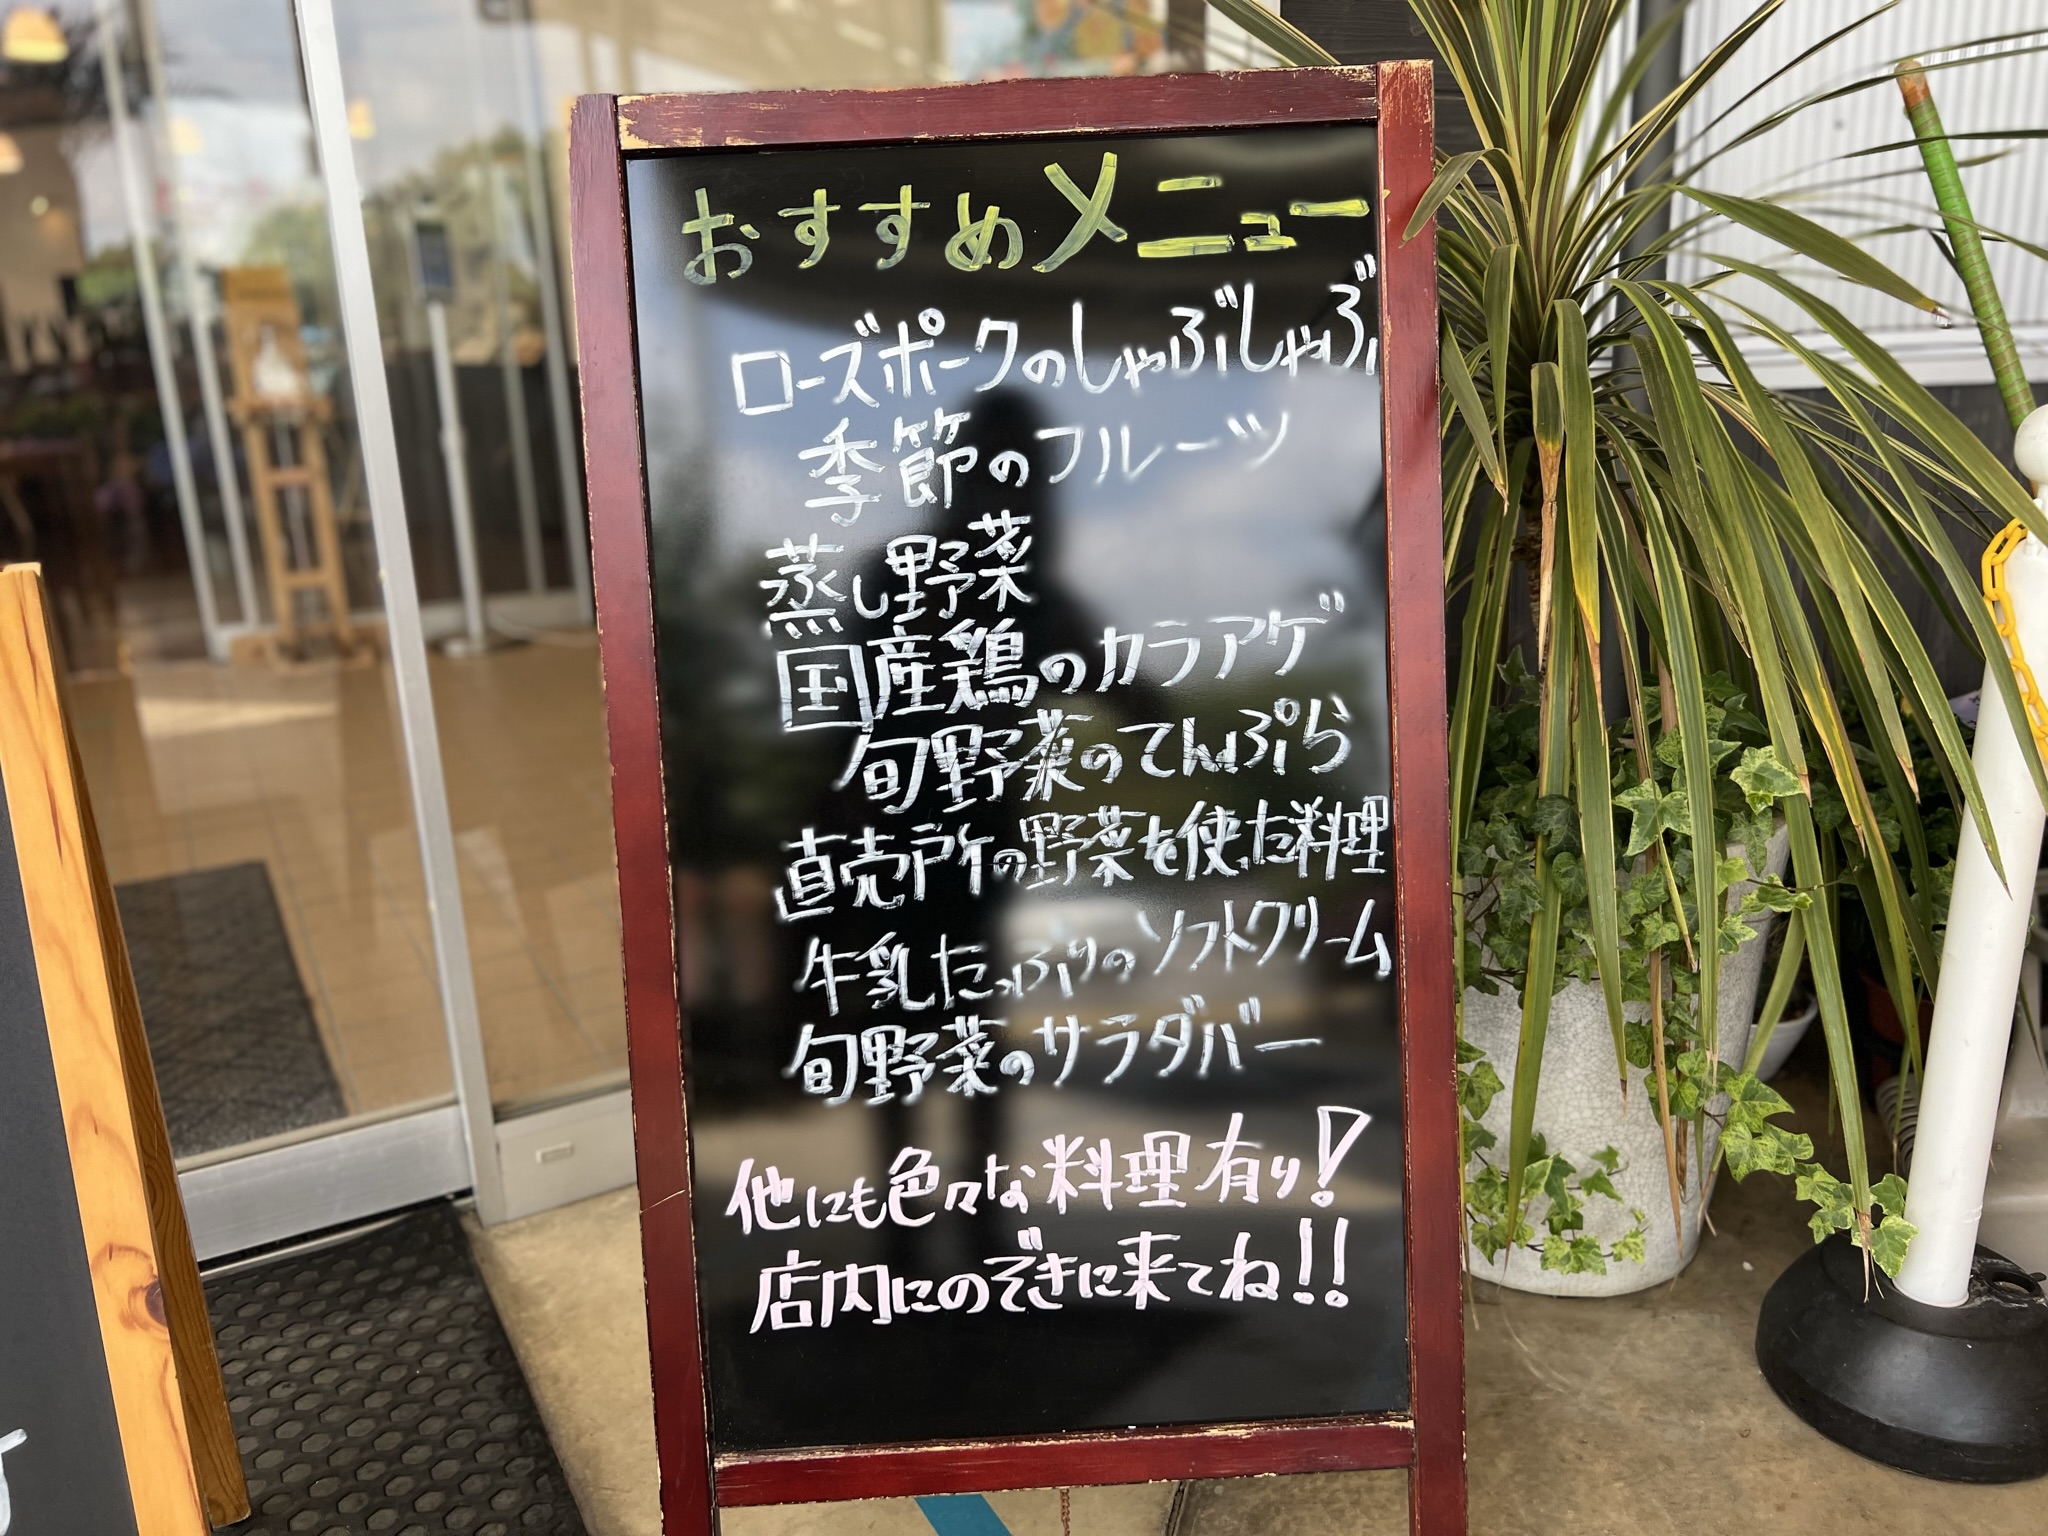 おすすめメニュー
ローズポークのしゃぶしゃぶ
季節のフルーツ
蒸し野菜
国産鶏のカラアゲ
旬野菜のてんぷら
直売所の野菜を使った料理
牛乳たっぷりのソフトクリーム
旬野菜のサラダバー
他にも色々な料理有り!
店内にのぞきに来てね!!